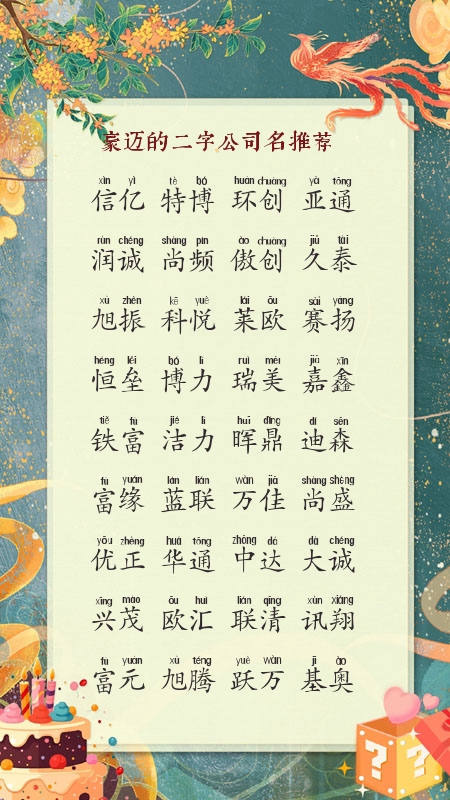 豪迈的二字公司名推荐
xìn yì tè bó huán chuàng yà tōng
信亿 特博 环创 亚通
rùn chéng shàng pín ào chuàng jiǔ tài
润诚 尚频 傲创 久泰
xù zhèn kē yuè lái ōu sài yáng
旭振 科悦 莱欧 赛扬
héng lěi bó lì ruì měi jiā xīn
恒垒 博力 瑞美 嘉鑫
tiě fù jié lì huī dǐng dí sēn
铁富 洁力 晖鼎 迪森
fù yuán lán lián wàn jiā shàng shèng
富缘 蓝联 万佳 尚盛
yōu zhèng huá tōng zhōng dá dà chéng
优正 华通 中达 大诚
xīng mào ōu huì lián qīng xùn xiáng
兴茂 欧汇 联清 讯翔
fù yuán xù téng yuè wàn jī ào
富元 旭腾 跃万 基奥
? ?